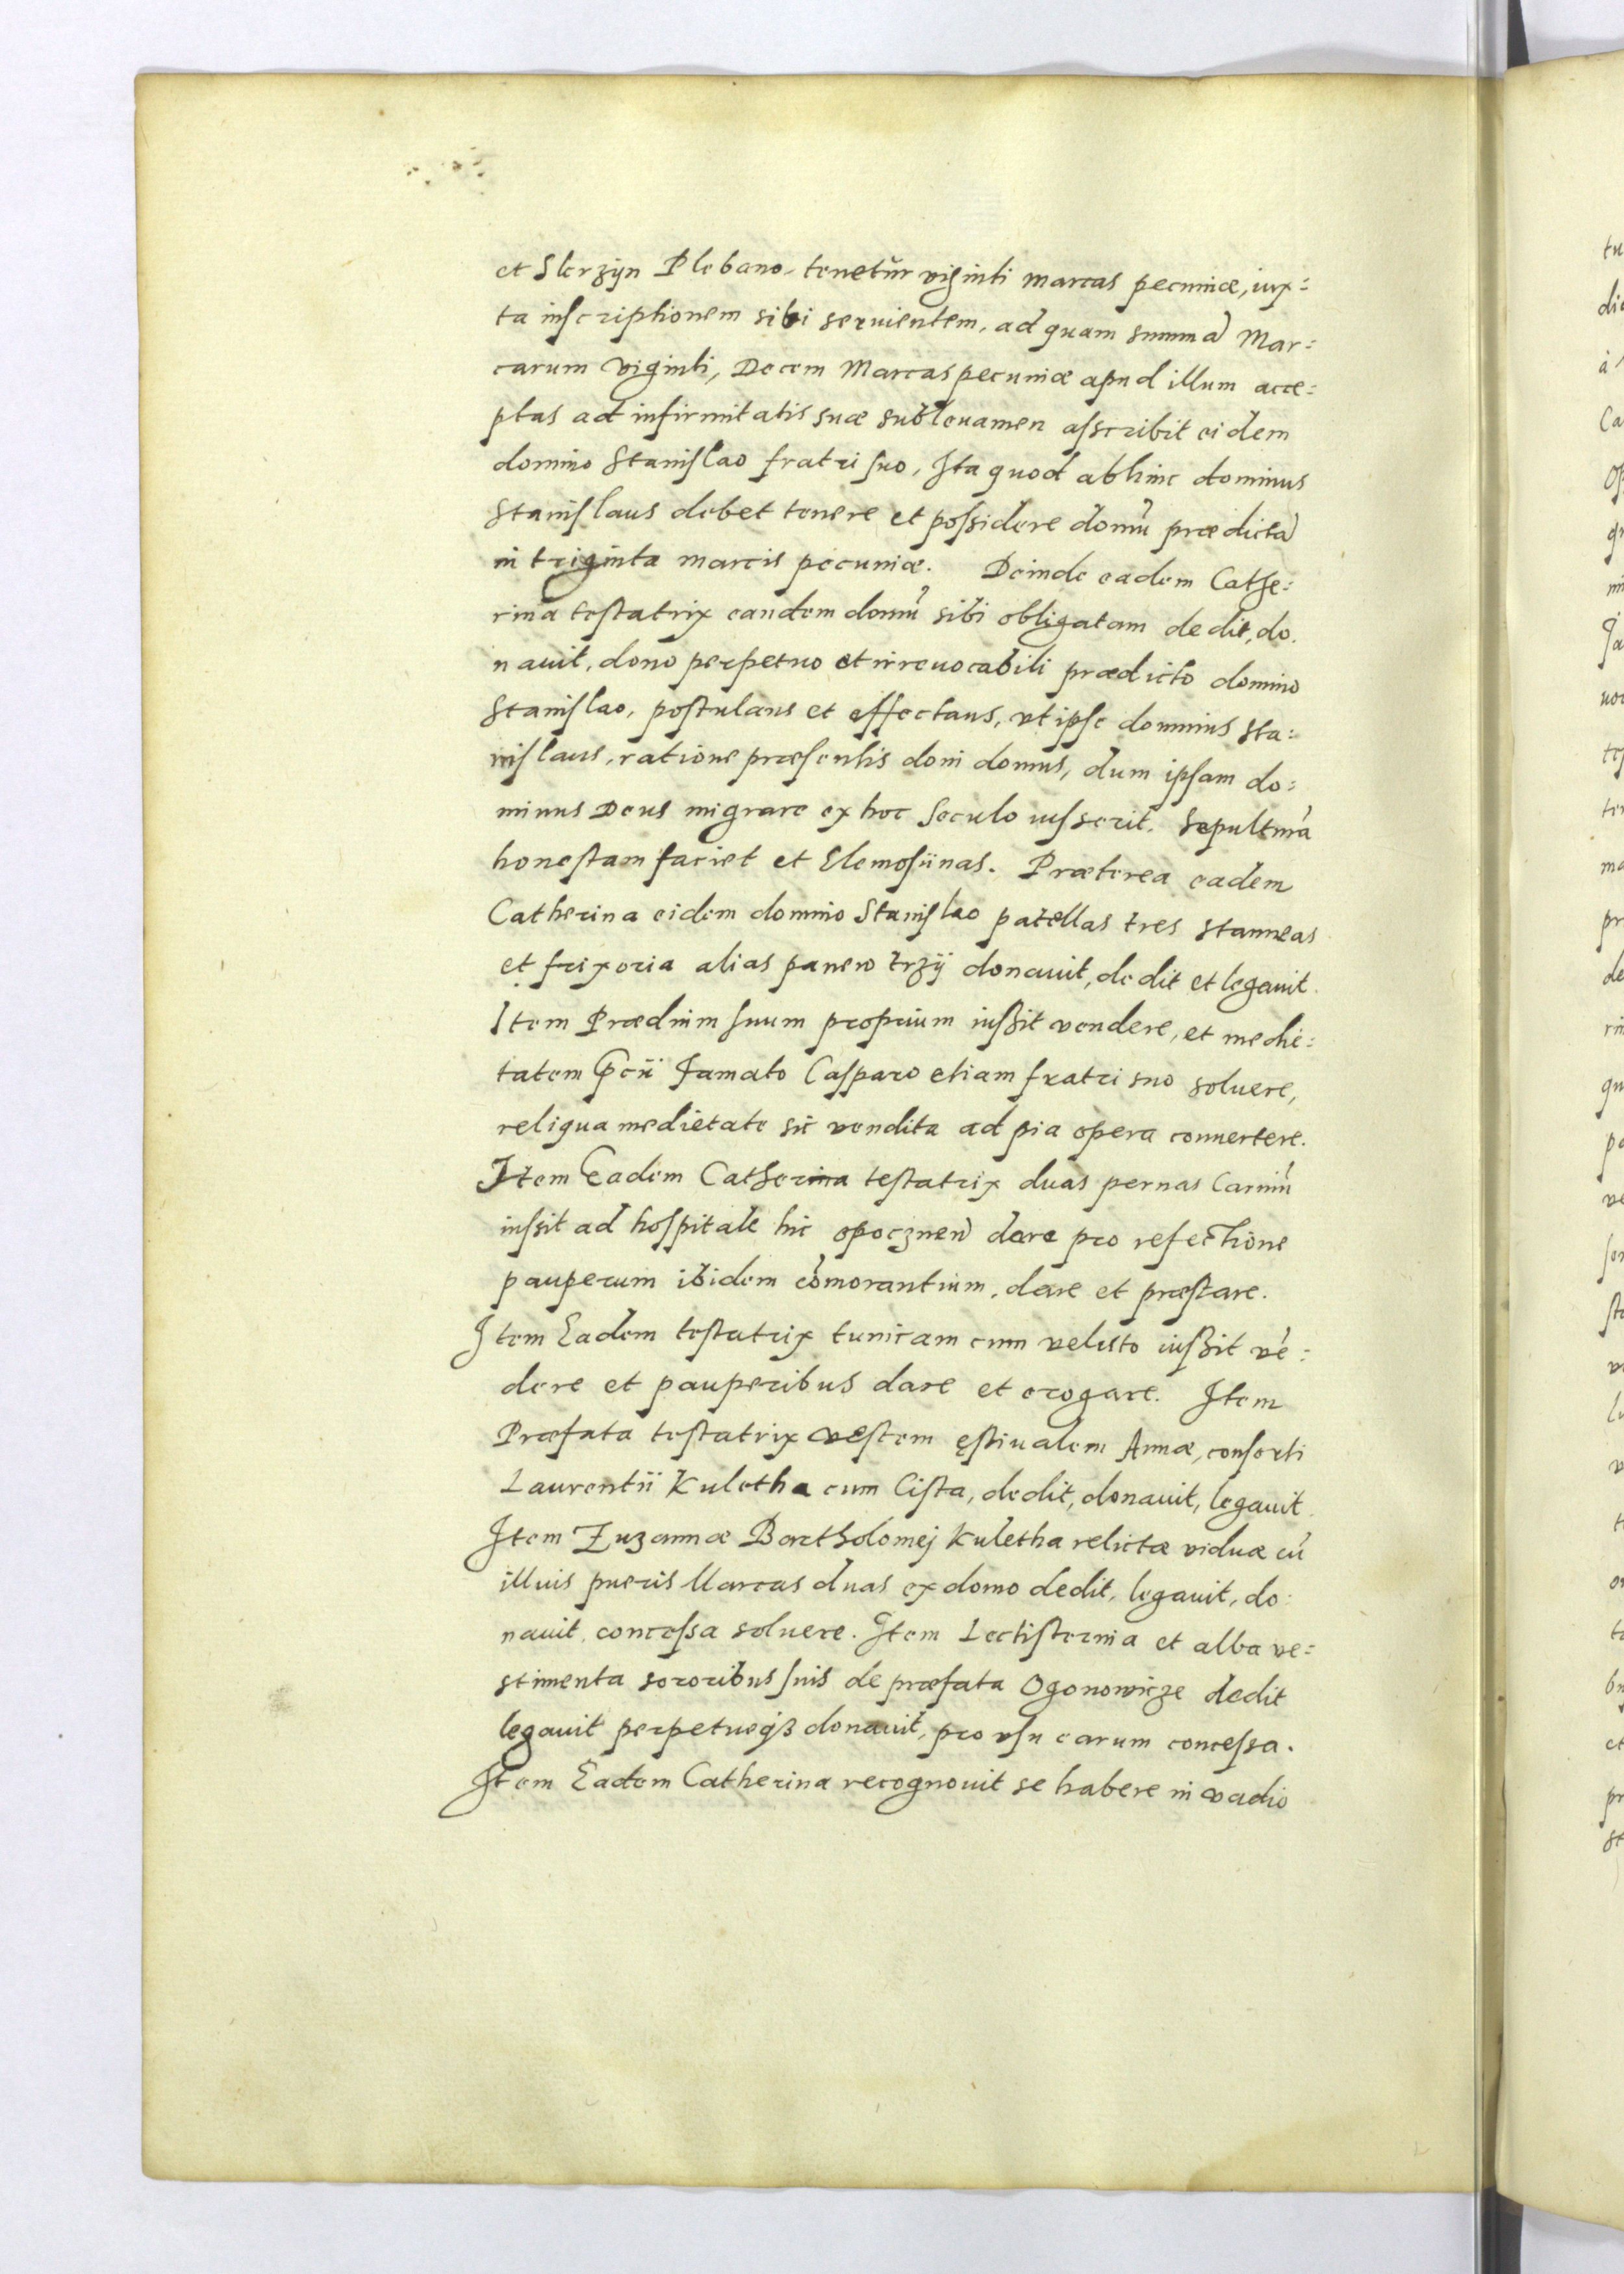 et Slerzÿn Plebano, tenetŭr viginti marcas pecuniæ, iux:
ta inſcriptionem sibi seruientem, ad quam summā Mar:
carum viginti, Decem Marcas pecuniæ apud illum acce:
ptas ad infirmitatis suæ sublouamen aſscribit eidem
domino Staniſlao fratri ſuo, Ita quod abhinc dominus
Staniſlaus debet tenere et poſsidere domū prædictā
in triginta marcis pecuniæ. Deinde eadem Cathe:
rina teſtatrix eandem domū sibi obligatam dedit, do.
nauit, dono perpetuo et irreuocabili prædicto domino
Staniſlao, poſtulans et affectans, vt ipſe dominus Sta:
niſlaus, ratione præſentis doni domus, dum ipſam do:
minus Deus migrare ex hoc ſeculo iuſserit, Sepulturā
honeſtam faciet et Elemoſiinas. Præterea eadem
Catherina eidem domino Staniſlao patellas tres stanneas
et frixoria alias panew trzÿ donauit, dedit et legauit.
Item Prædium ſuum proprium iuſsit vendere, et medie:
tatem Famato Caſparo etiam fratri suo soluere,
reliqua medietate sic vendita ad pia opera conuertere.
Item Eadem Catherina teſtatrix duas pernas Carniū
iuſsit ad hoſpitale hic opocznen̄ dare pro refectione
pauperum ibidem cōmorantium, dare et præſtare.
Item Eadem teſtatrix tunicam cum velesto iuſsit vē:
dere et pauperibus dare et erogare. Item
Præfata teſtatrix veſtem ęſtiualem Annæ, conſorti
Laurentii Kuletha cum Ciſta, dedit, donauit, legauit.
Item Zuzannæ Bartholomej Kuletha relictæ viduæ cū
illius pueris Marcas duas ex domo dedit, legauit, do:
nauit, conceſsa soluere. Item Lectiſternia et alba ve:
stimenta sororibus ſuis de præfata Ogonowicze dedit
legauit perpetueqȝ donauit, pro vſu earum conceſsa.
Item Eadem Catherina recognouit se habere in vadio